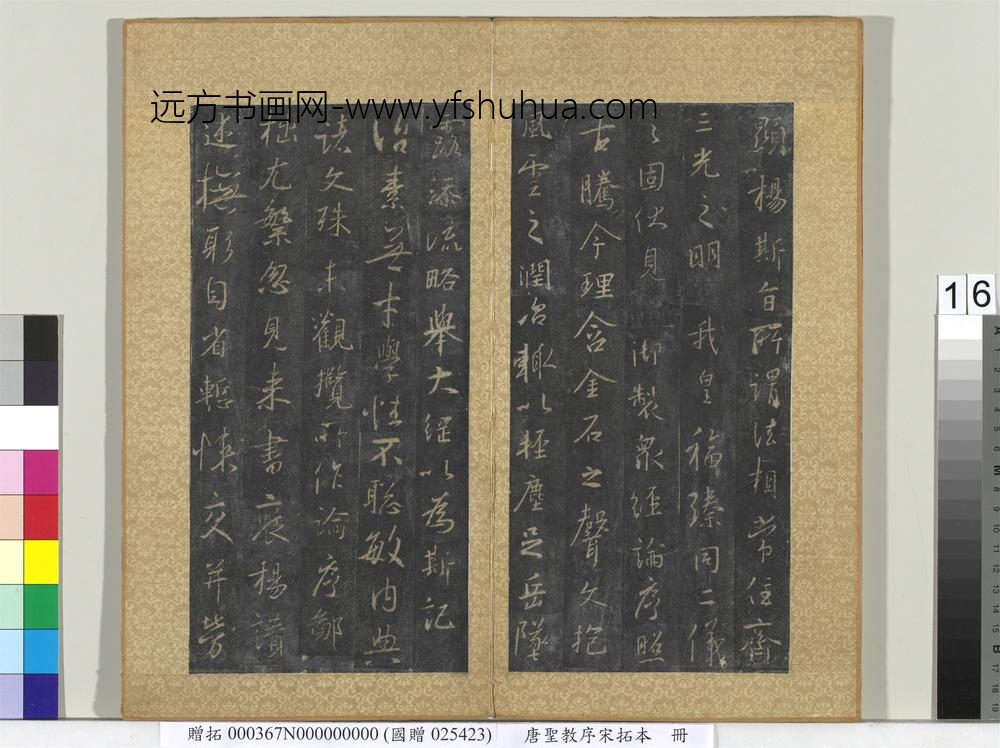 远方书画网-www.yfshuhua.com
顯揚斯旨所謂法相常住齊
三光之明我皇福臻同二儀
之固伏見御製眾經論序照
古騰今理含金石之聲文抱
風雲之潤治輒以輕塵足岳墜
露添流略舉大綱以為斯記
治素無才學性不聰敏內典
諸文殊未觀攬所作論序鄙
拙尤繁忽見來書褒揚讚
述撫躬自省慙悚交并勞
16
贈拓 000367N000000000 (國贈 025423) 唐聖教序宋拓本 冊